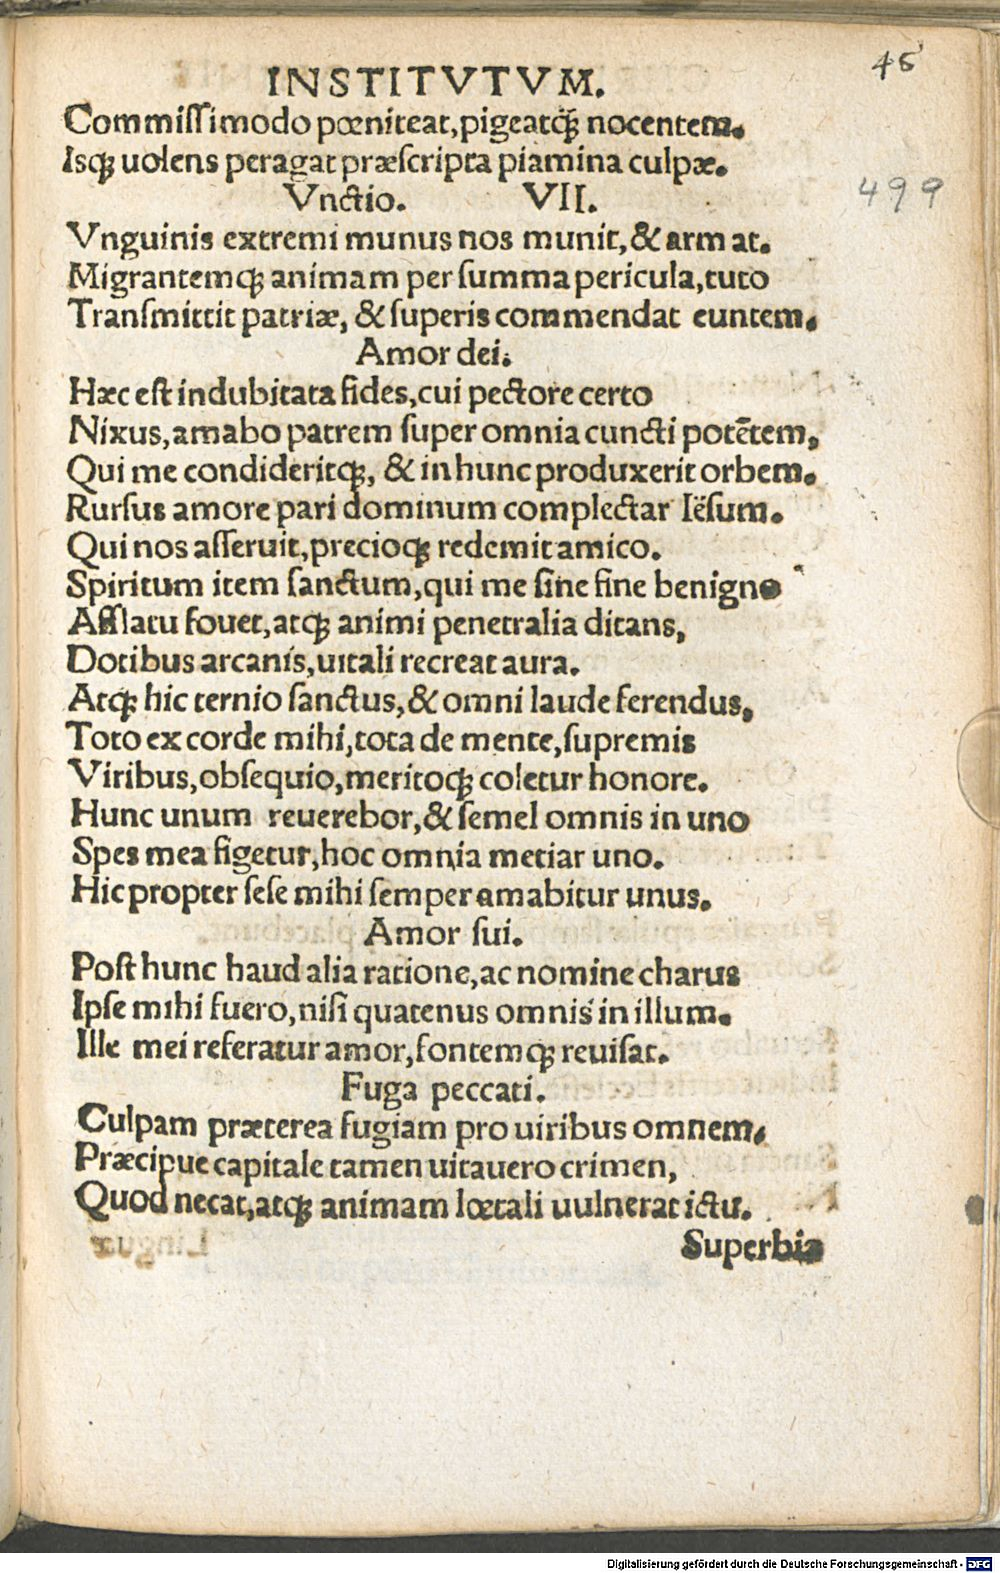 45
INSTITVTVM.
Commissi modo pœniteat, pigeatqꝫ nocentem.
Isqꝫ uolens peragat præscripta piamina culpæ.
499
Vnctio. VII.
Vnguinis extremi munus nos munit, & armat.
Migrantemqꝫ animam per summa pericula, tuto
Transmittit patriæ, & superis commendat euntem.
Amor dei.
Hæc est indubitata fides, cui pectore certo
Nixus, amabo patrem super omnia cuncti potẽtem,
Qui me condideritqꝫ, & in hunc produxerit orbem.
Rursus amore pari dominum complectar Iësum.
Qui nos asseruit, precioqꝫ redemit amico.
Spiritum item sanctum, qui me sine fine benigno
Afflatu fouet, atqꝫ animi penetralia ditans,
Dotibus arcanis, uitali recreat aura.
Atqꝫ hic ternio sanctus, & omni laude ferendus,
Toto ex corde mihi, tota de mente, supremis
Viribus, obsequio, meritoqꝫ coletur honore.
Hunc unum reuerebor, & semel omnis in uno
Spes mea figetur, hoc omnia metiar uno.
Hic propter sese mihi semper amabitur unus.
Amor sui.
Post hunc haud alia ratione, ac nomine charus
Ipse mihi fuero, nisi quatenus omnis in illum.
Ille mei referatur amor, fontemqꝫ reuisat.
Fuga peccati.
Culpam præterea fugiam pro uiribus omnem,
Præcipue capitale tamen uitauero crimen,
Quod necat, atqꝫ animam lœtali uulnerat ictu.
Superbia
Digitalisierung gefördert durch die Deutsche Forschungsgemeinschaft - DFG